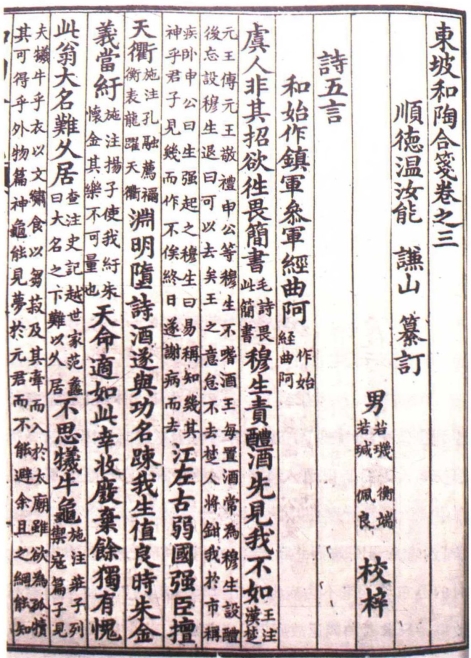 東坡和陶合箋卷之三
順德温汝能 謙山 纂訂
男 若璣 衡端 若珹 佩良 校梓
詩五言
和始作鎮軍叅軍經曲阿 作始經曲阿
虞人非其招欲徃畏簡書 毛詩畏此簡書 穆生責醴酒先見我不如 王注漢楚
元王傳元王敬禮申公等穆生不嗜酒王每置酒常為穆生設醴
後忘設穆生退曰可以去矣王之意怠不去楚人將鉗我於市稱
疾卧申公曰生强起之穆生曰易稱知幾其神乎君子見幾而作不俟終日遂謝病而去 江左古弱國强臣擅
天衢 施注孔融薦禰衡表龍躍天衢 淵明墮詩酒遂與功名踈我生值良時朱金
義當紆 施注揚子使我紆朱懷金其樂不可量也 天命適如此幸收廢棄餘獨有愧
此翁大名難乆居 查注史記越世家范蠡曰大名之下難以乆居 不思犧牛龜 施注莊子列禦寇篇子見
夫犧牛乎衣以文繡食以芻菽及其牽而入於太廟雖欲為孤犢
其可得乎外物篇神龜能見夢於元君而不能避余且之網能知